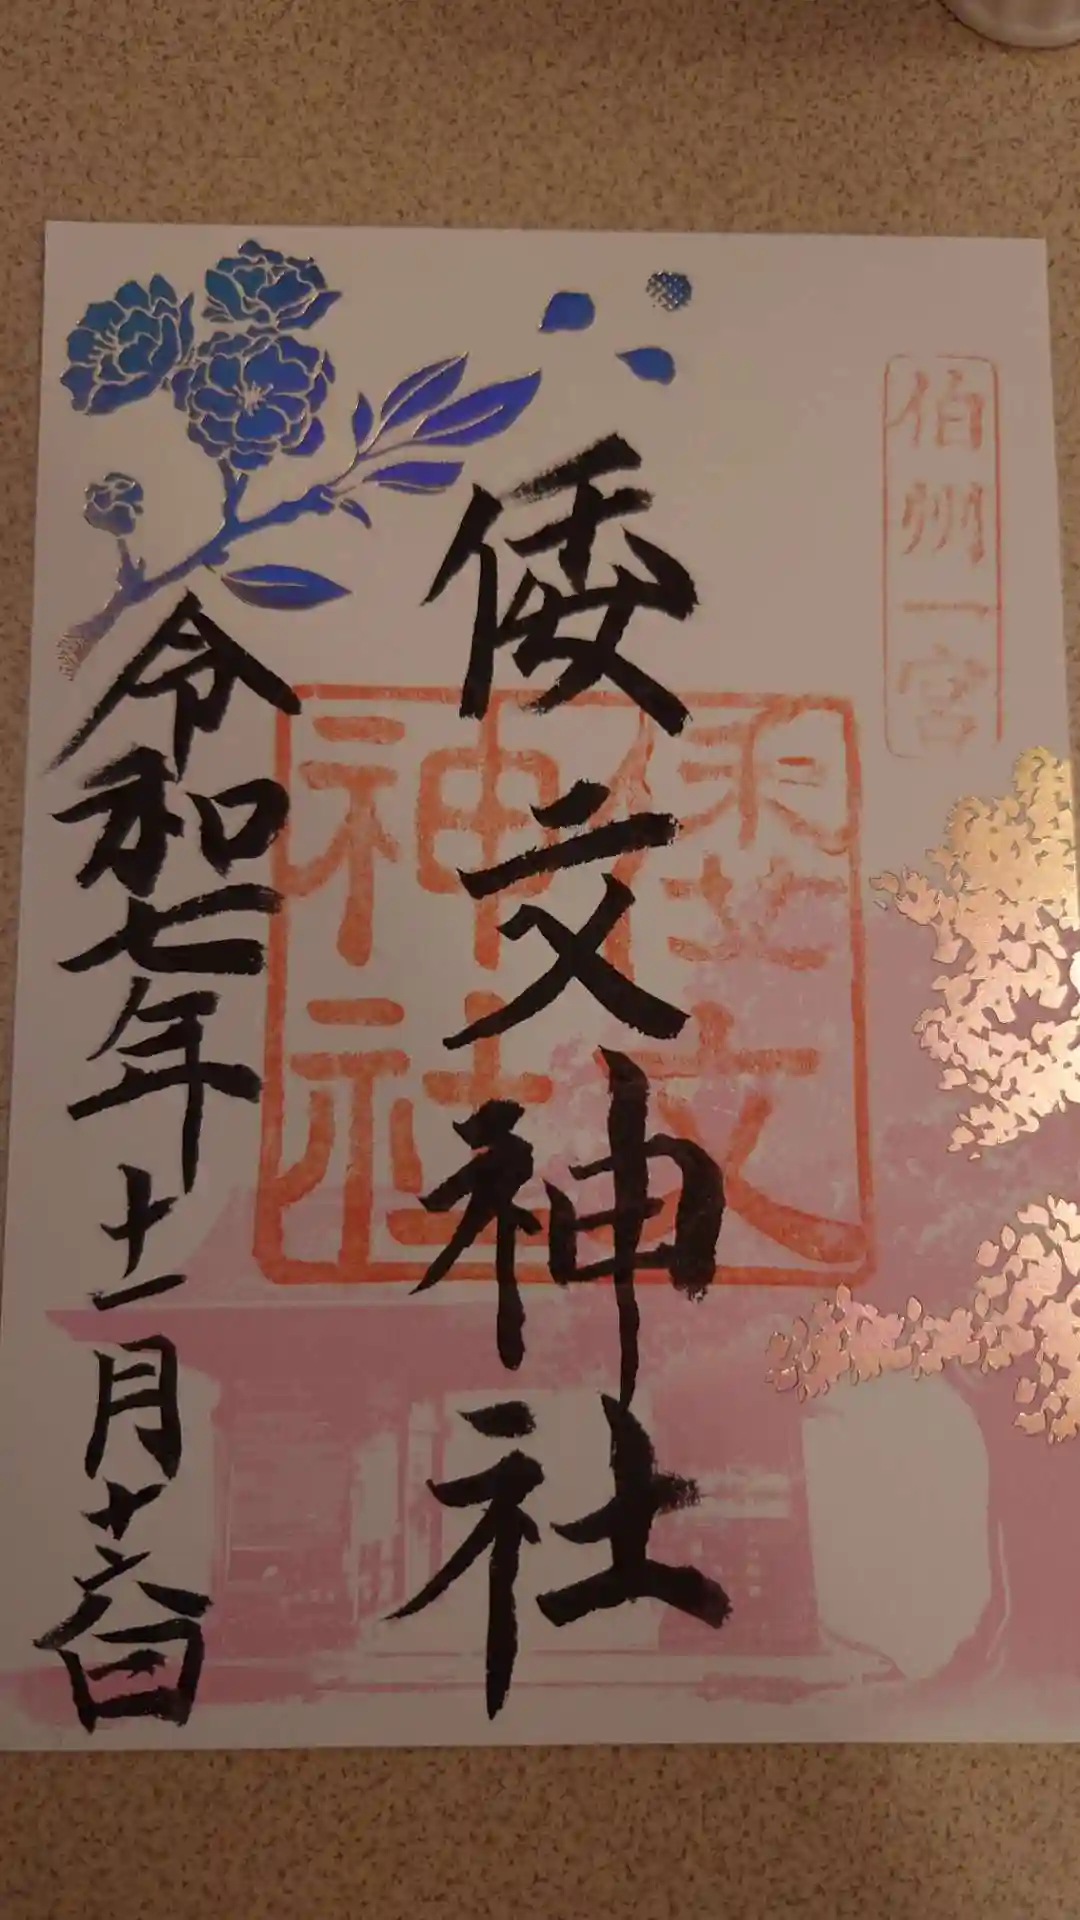 伯州一宮
倭文神社
倭文
神社
令和七年十一月十六日